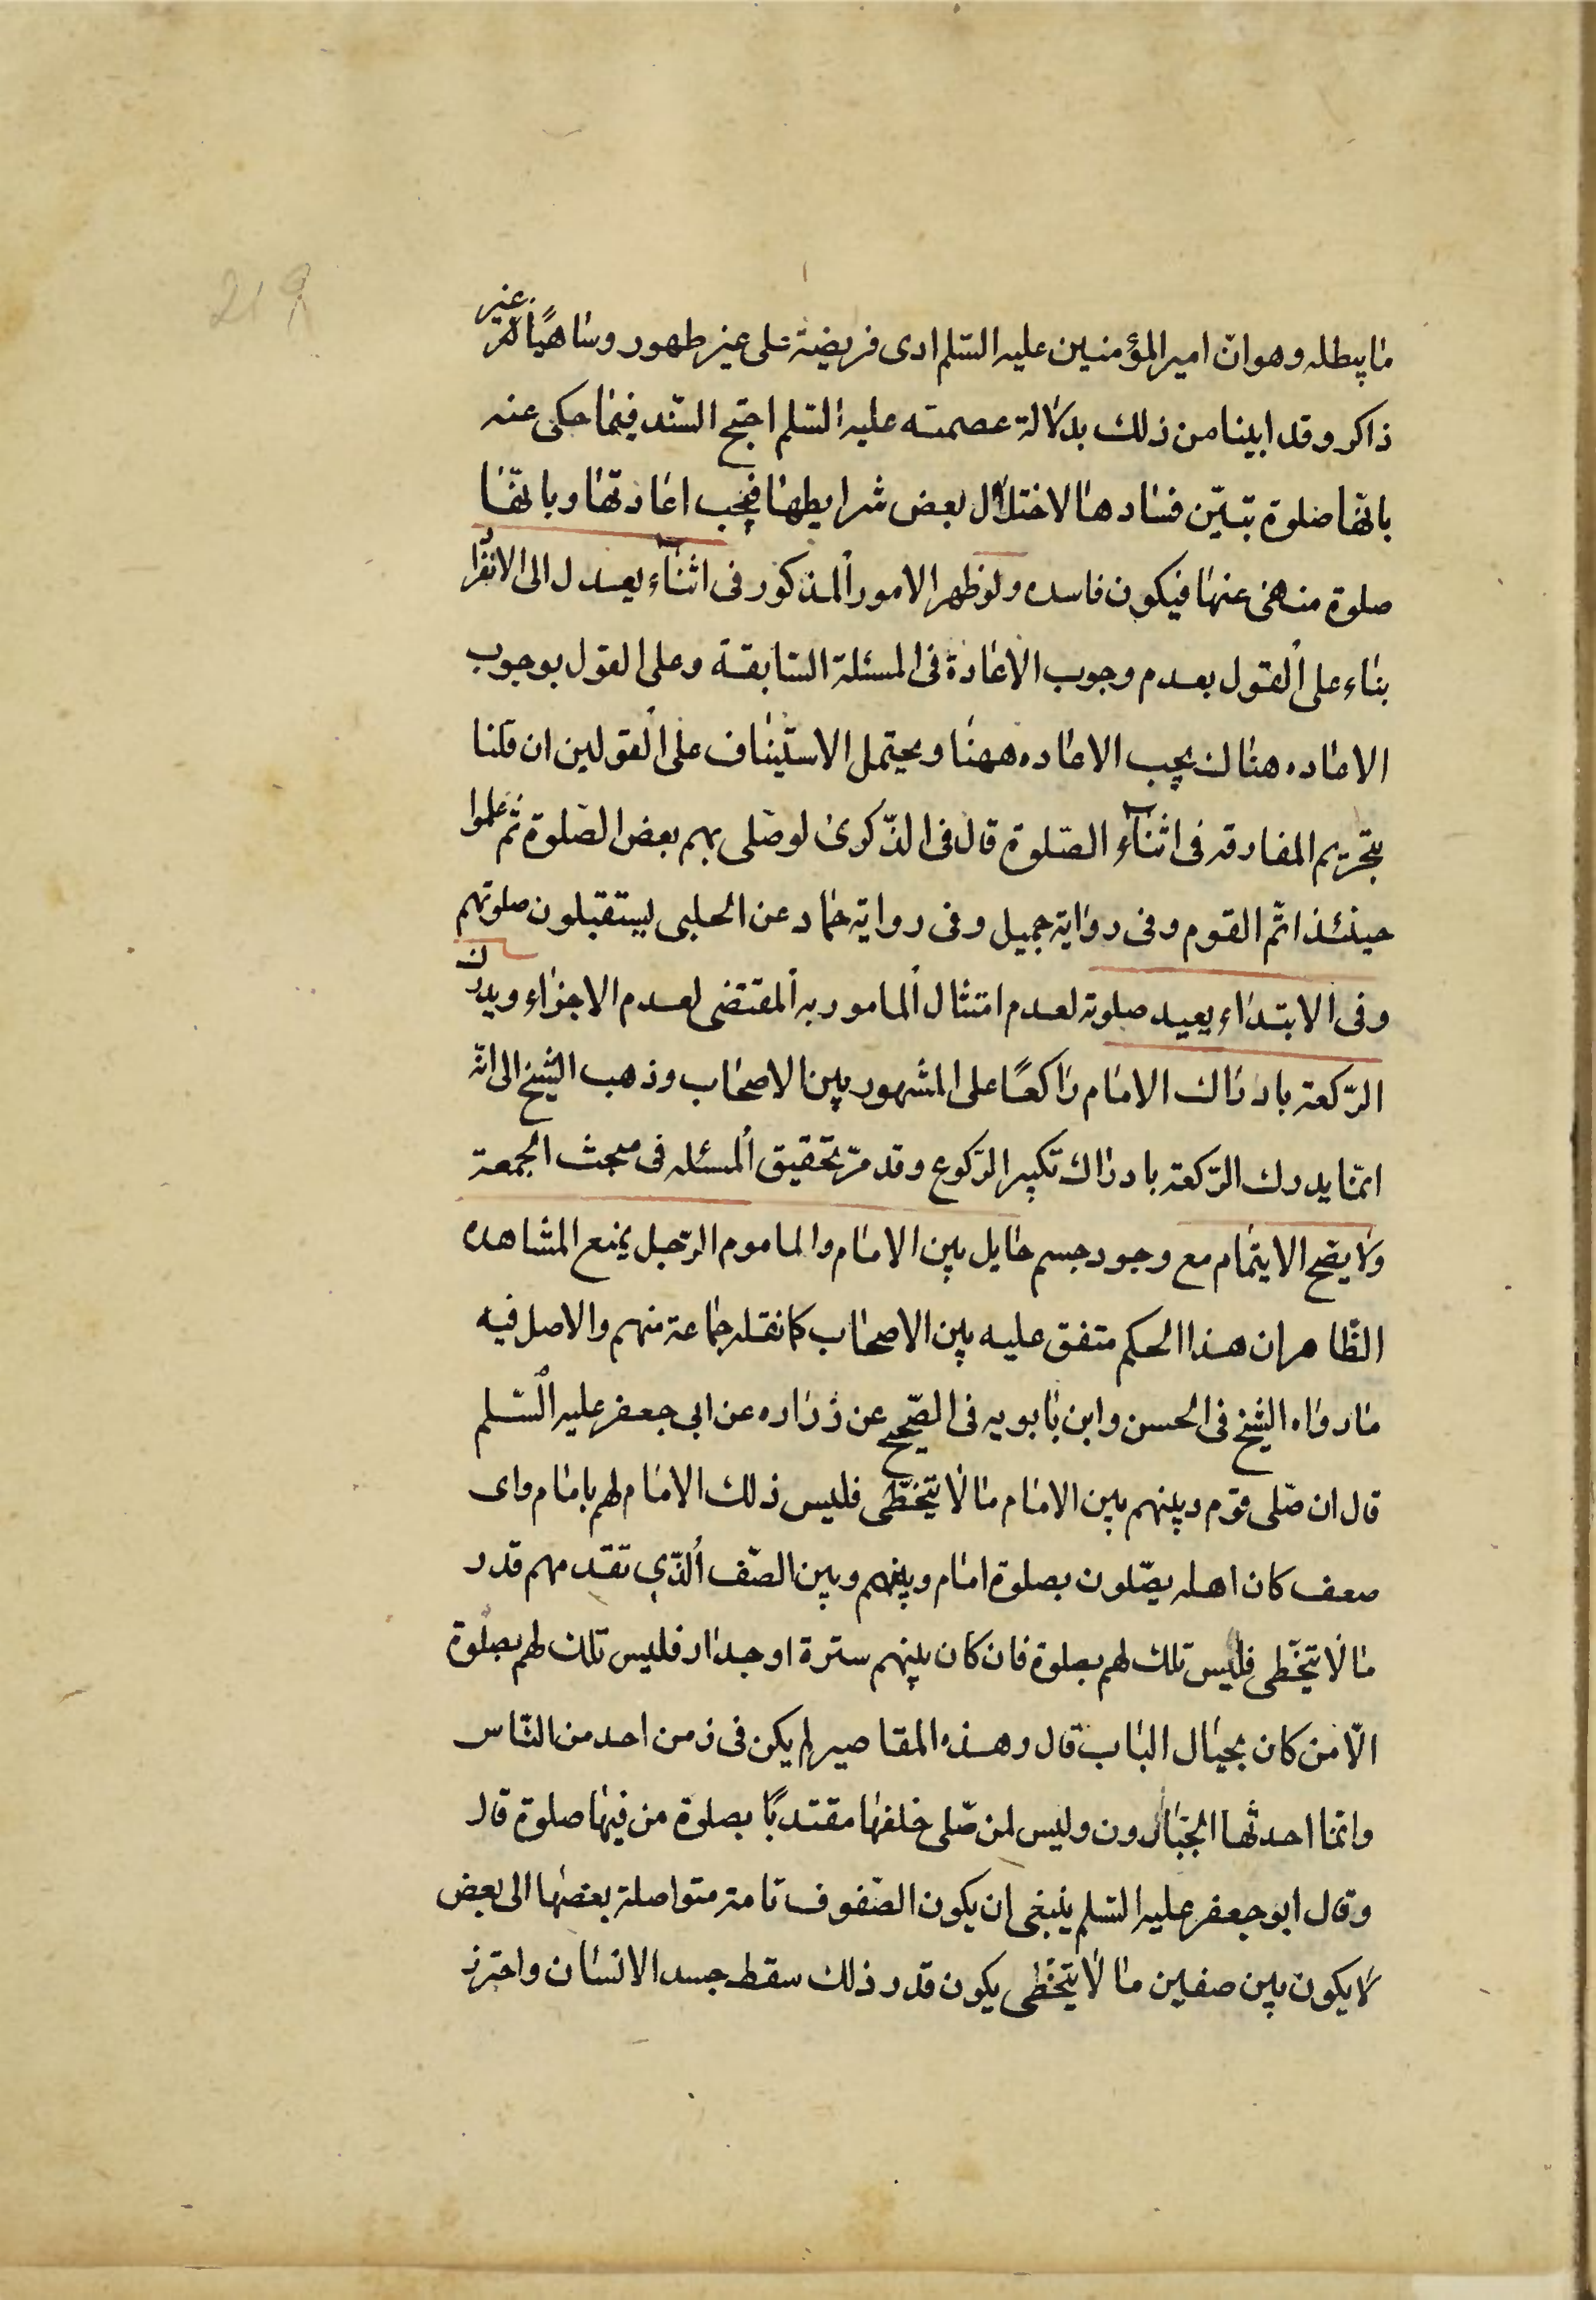 219
ما يبطله وهو انّ امير المؤمنين عليه السّلم ادى فريضة على غير طهور وساهيًا غير
ذاكر وقد ابينا من ذلك بدلالة عصمته عليه السّلم احتج السّند فيما حكى عنه
بانها صلوة تبيّن فسادها لاختلال بعض شرايطها فيجب اعادتها وبانّها
صلوة منهى عنها فيكون فاسده ولو ظهر الامور المذكور فى اثناء يعدل الى الانفرا
بناء على القول بعدم وجوب الاعادة فى المسئلة السّابقة وعلى القول بوجوب
الاعاده هناك يجب الاعاده ههنا ويحتمل الاستيناف على القولين ان قلنا
بتحريم المفارقه فى اثناء الصّلوة قال فى الذّكرى لو صلى بهم بعض الصّلوة ثم علموا
حينئذ اتم القوم وفى رواية جميل وفى رواية حمّاد عن الحلبى يستقبلون صلوتهم
وفى الابتداء يعيد صلوته لعدم امتثال المامور به المقتضى لعدم الاجزاء ويدرك
الرّكعة بادراك الامام راكعًا على المشهور بين الاصحاب وذهب الشيخ الى انّه
انّما يدرك الرّكعة بادراك تكبير الرّكوع وقد مرّ تحقيق المسئله فى مبحث الجمعة
ولا يصح الايتمام مع وجود جسم حايل بين الامام والماموم الرّجل يمنع المشاهده
الظّاهر ان هذا الحكم متفق عليه بين الاصحاب كما نقله جماعة منهم والاصل فيه
ما رواه الشيخ فى الحسن وابن بابويه فى الصّحيح عن زراره عن ابى جعفر عليه السّلم
قال ان صلّى قوم وبينهم بين الامام ما لا يتخطّى فليس ذلك الامام لهم بامام واى
صف كان اهله يصّلون بصلوة امام وبينهم وبين الصّف الّذى تقدمهم قدر
ما لا يتخّطى فليس تلك لهم بصلوة فان كان بينهم سترة او جدار فليس تلك لهم بصلوة
الّا من كان بحيال الباب قال وهذه المقاصير لم يكن فى زمن احد من النّاس
وانّما احدثها الجبّارون وليس لمن صّلى خلفها مقتديًا بصلوة من فيها صلوة قال
وقال ابو جعفر عليه السّلم ينبغى ان يكون الصّفوف تامة متواصلة بعضها الى بعض
لا يكون بين صفين ما لا يتخّطى يكون قدر ذلك سقط جسد الانسان واحترز